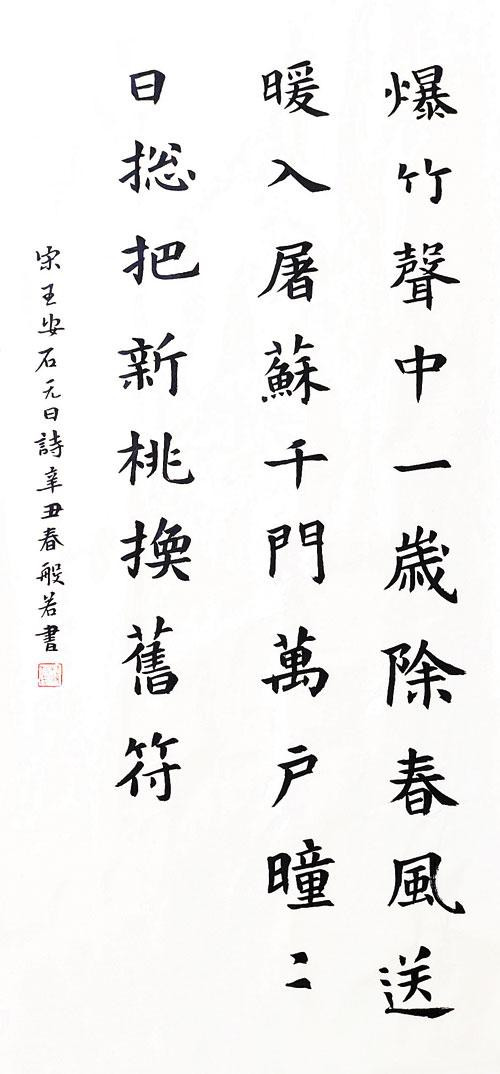 爆竹聲中一歲除春風送
暖入屠蘇千門萬戶曈〻
日捴把新桃換舊符
宋王安石元日詩辛丑春般若書